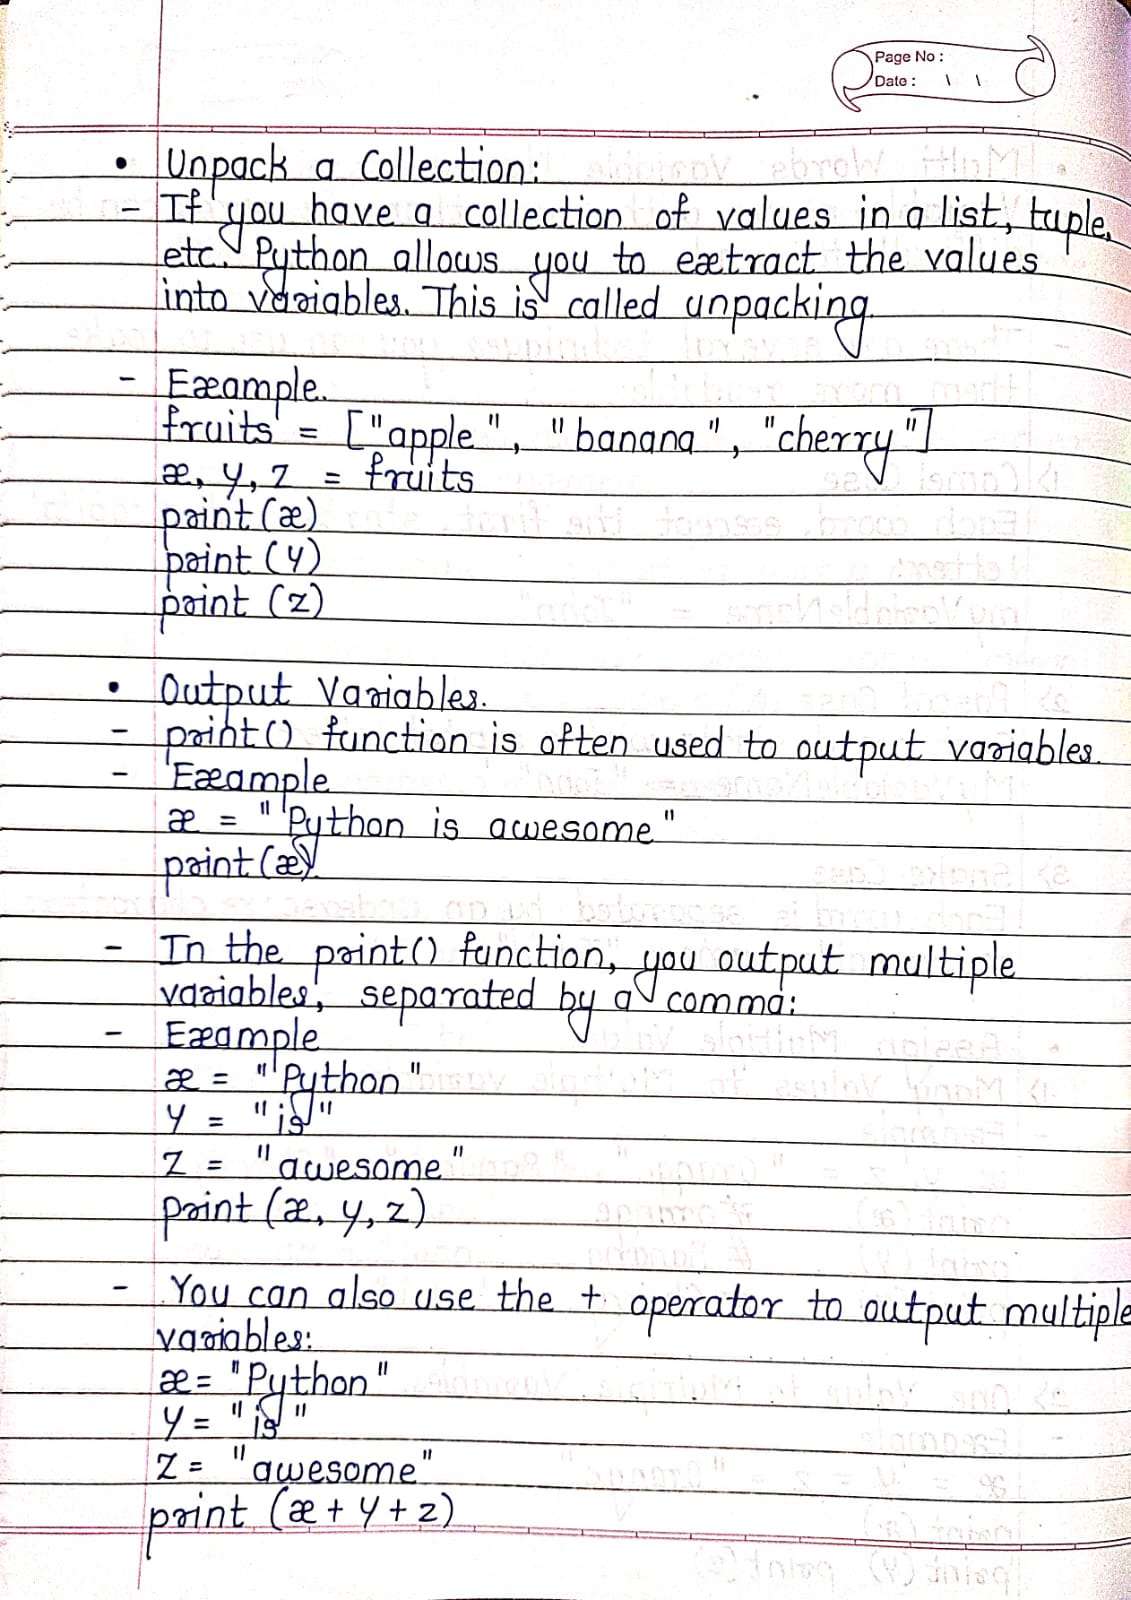 Page No :
Date : \ \
• Unpack a Collection:
- If you have a collection of values in a list, tuple,
etc. Python allows you to extract the values
into variables. This is called unpacking.
- Example.
fruits = ["apple", "banana", "cherry"]
x, y, z = fruits
print(x)
print (y)
print (z)
• Output Variables.
- print() function is often used to output variables.
- Example
x = "Python is awesome"
print(x)
- In the print() function, you output multiple
variables, separated by a comma:
- Example
x = "Python"
y = "is"
z = "awesome"
print (x, y, z)
- You can also use the + operator to output multiple
variables:
x = "Python"
y = "is"
z = "awesome"
print (x + y + z)